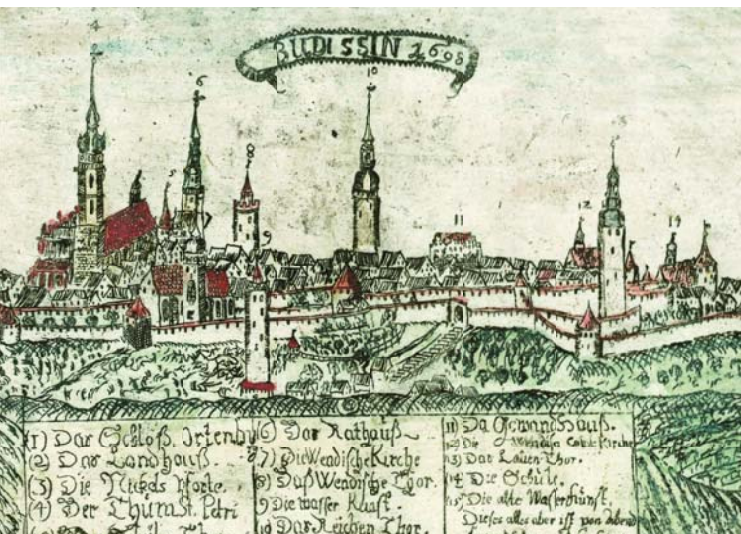 BUDISSIN 1698
4
6
10
8
5
9
11
12
14
1) Das Schloß. Ortenb
(2) Das Landhauß.
(3) Die Nickels Pforte.
(4) Der Thum St. Petri
6) Das Rathauß
7) Die Wendische Kirche
8) Daß Wendische Thor.
9) Die wasser Kunst.
10 Das Reichen Thor.
11) Da Gewandhauß.
12) Die Kirche
13) Das Lauen Thor.
14 Die Schule.
15) Die alte Wasserkunst.
Dieses alles aber ist von